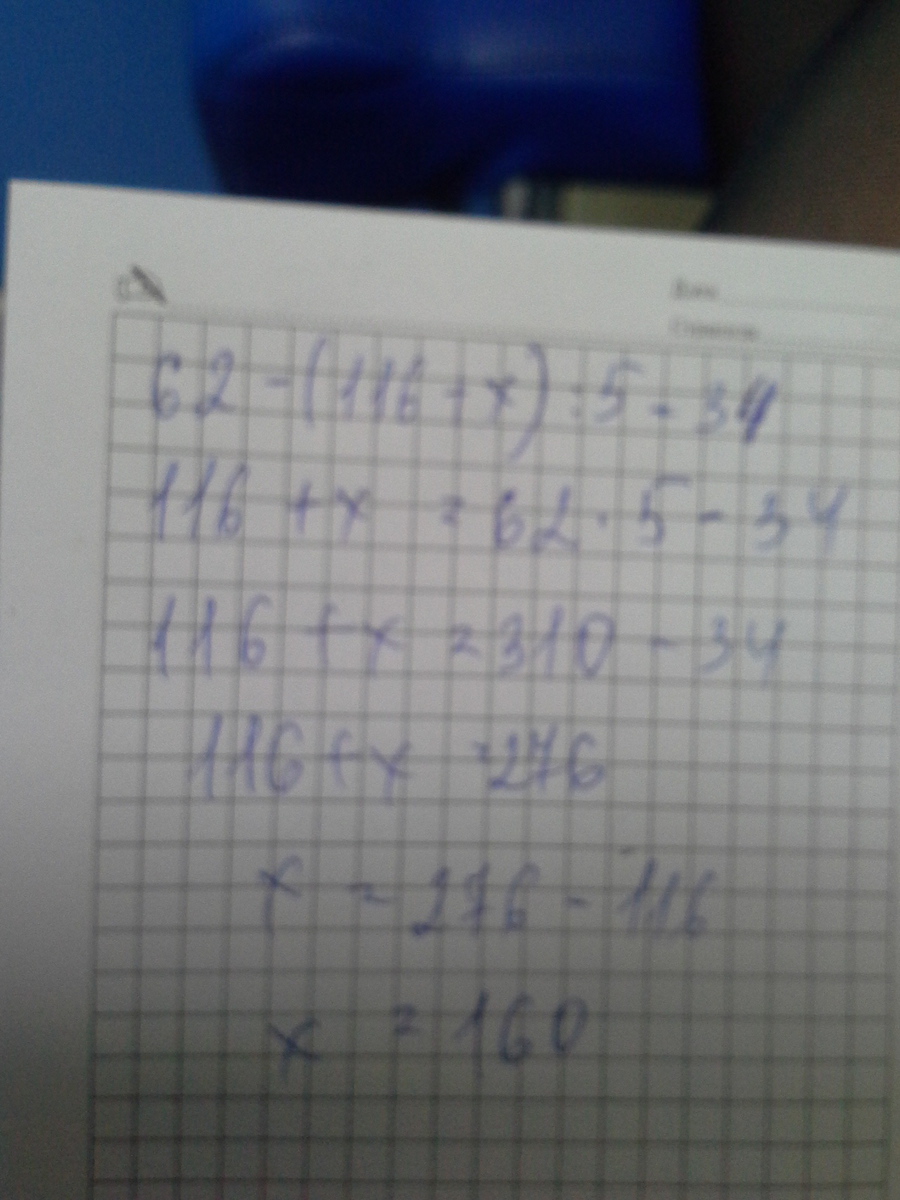 62 - (116 + x) : 5 = 34
116 + x = 62 · 5 - 34
116 + x = 310 - 34
116 + x = 276
x = 276 - 116
x = 160